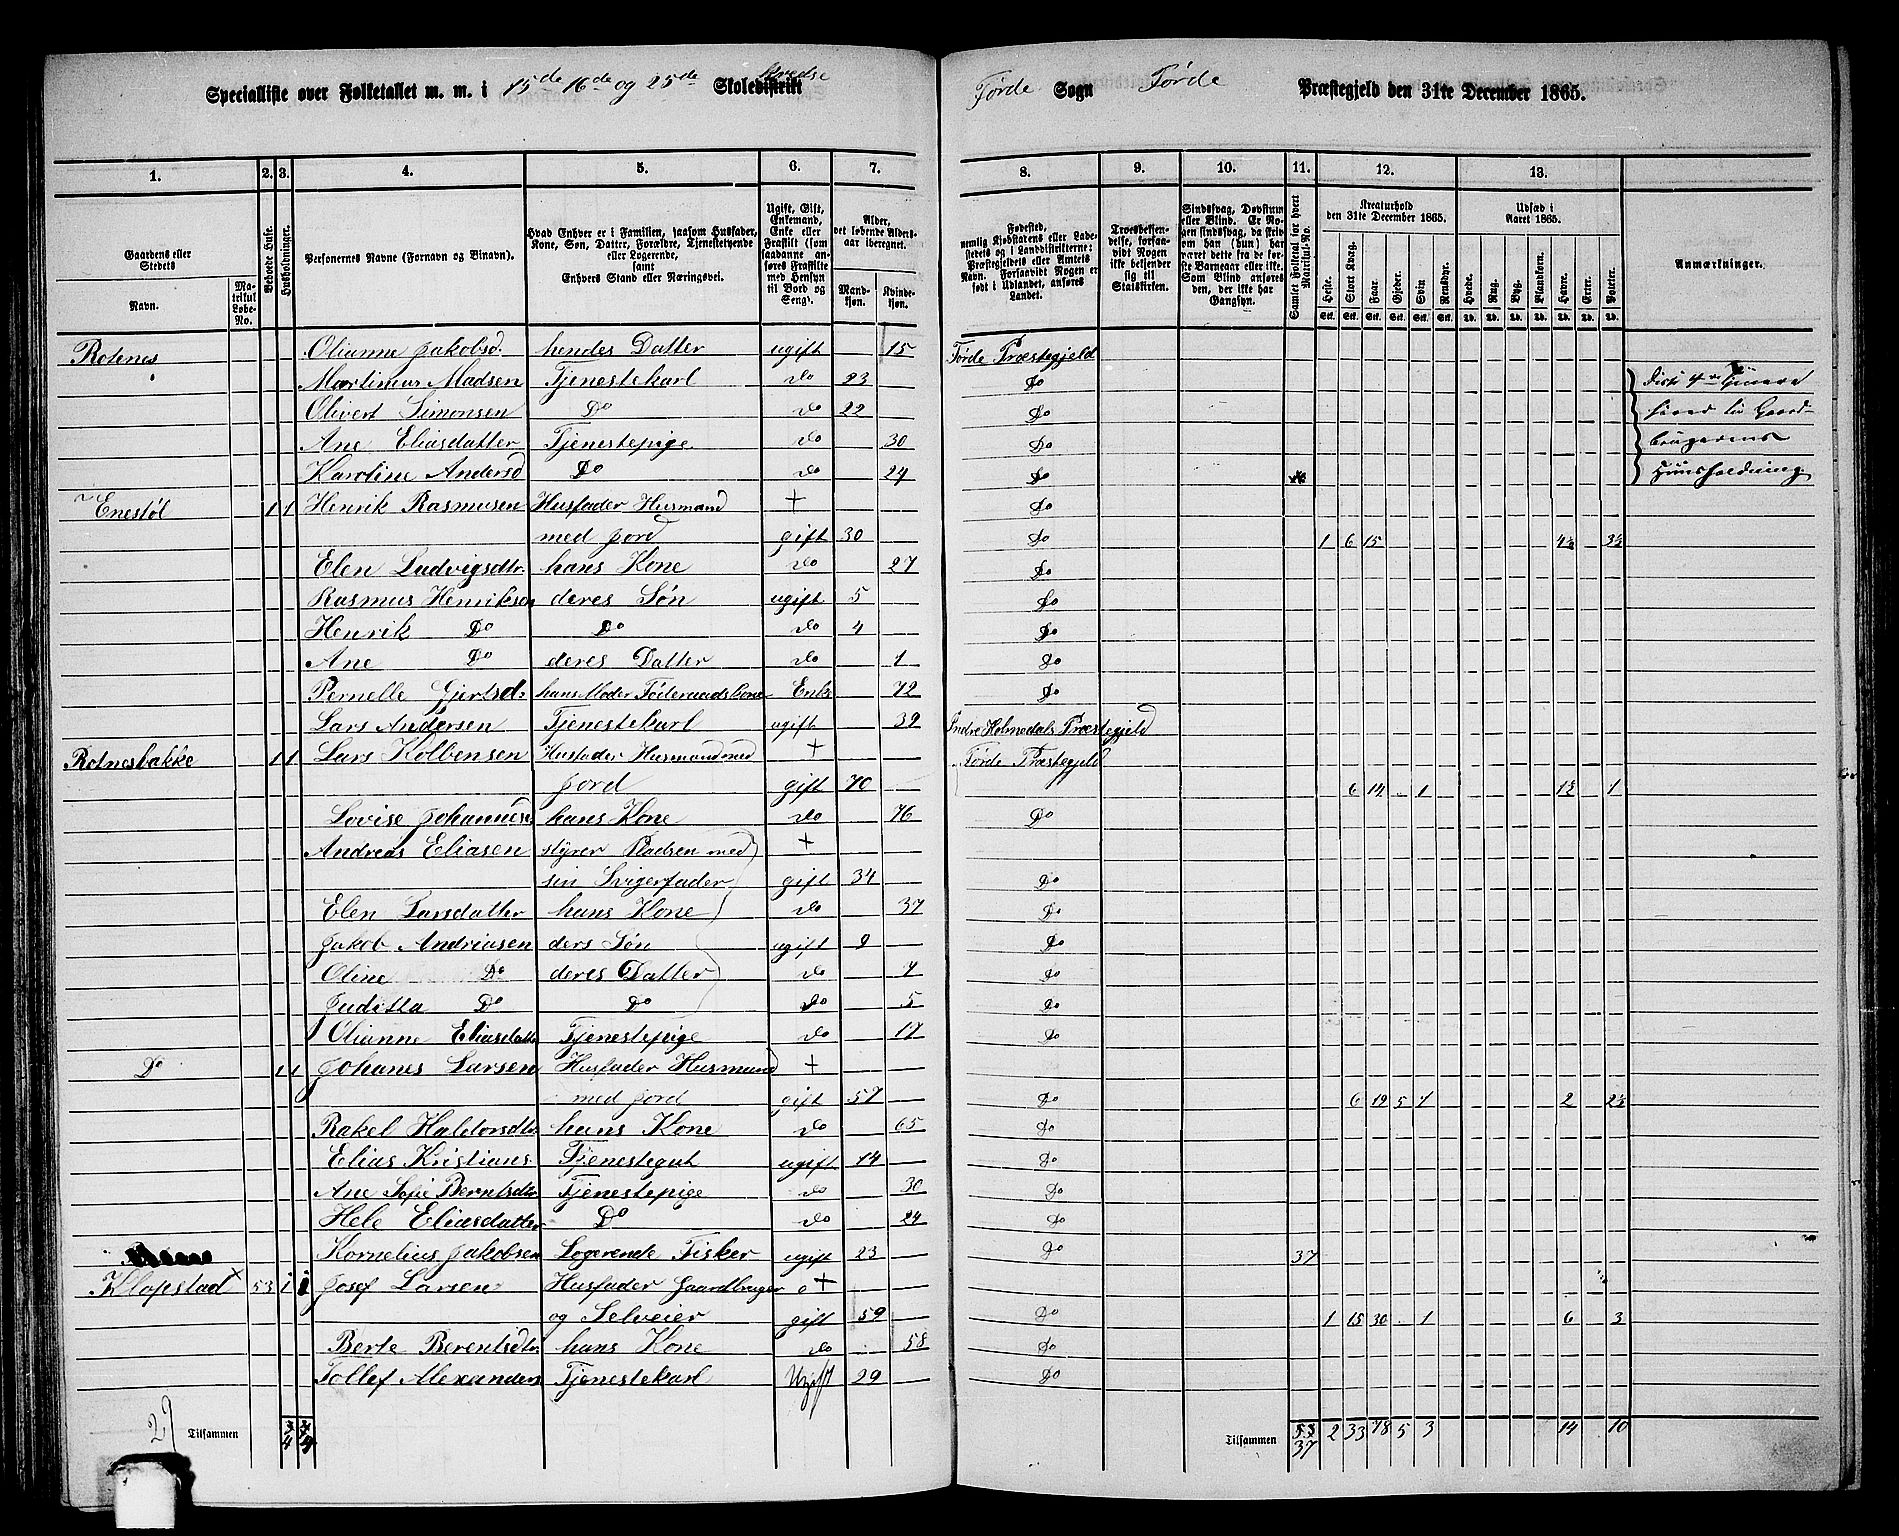 Specialliste over Folketallet m. m. i 15de 16de og 25de Skoledistrikt Kredse
Førde Sogn Førde Præstegjeld den 31te December 1865.
1. 2. 3. 4. 5. 6. 7. 8. 9. 10. 11. 12. 13.
Gaardens eller Stedets
Navn.
Matrikul Løbe-No.
Beboede Huse.
Husholdninger.
Personernes Navne (Fornavn og Binavn).
Hvad Enhver er i Familien, saasom Husfader, Kone, Søn, Datter, Forældre, Tjenestetyende eller Logerende, samt Enhvers Stand eller Næringsvei.
Ugift, Gift, Enkemand, Enke eller Fraskilt (som saadanne anføres Fraskilte med Hensyn til Bord og Seng).
Alder, det løbende Aldersaar iberegnet.
Mandkjøn. Kvindekjøn.
Fødested, nemlig Kjøbstadens eller Ladestedets og i Landdistrikterne: Præstegjeldets eller Amtets Navn. Forsaavidt Nogen er født i Udlandet, anføres Landet.
Troesbekjendelse, forsaavidt Nogen ikke bekjender sig til Statskirken.
Sindssvag, Døvstum eller Blind. Er Nogen sindssvag, da skrives om han (hun) har været dette fra de første Barneaar eller ikke. Som Blind anføres den, der ikke har Gangsyn.
Samlet Folketal for hvert Matrikul No.
Kreaturhold den 31te December 1865.
Heste. Stort Kvæg. Faar. Gjeder. Svin Rensdyr.
Udsæd i Aaret 1865.
Hvede. Rug. Byg. Blandkorn. Havre. Erter. Poteter.
Anmærkninger.
Rotenes Olianne Jakobsd. hendes Datter ugift 15 Førde Præstegjeld
Martimus Madsen Tjenestekarl do 23 Do
Olivert Simonsen Do do 22 Do
Ane Eliasdatter Tjenestepige do 30 Do
Karoline Andersd Do do 24 Do
Enestøl 1 1 Henrik Rasmusen Husfader Husmand + Do
med Jord gift 30 Do 1 6 15 4½ 3½
Elen Ludvigsdtr. hans Kone do 27 Do
Rasmus Henriksen deres Søn ugift 5 Do
Henrik Do Do do 4 Do
Ane Do deres Datter do 1 Do
Pernelle Gjertsd. hans Moder Føderaadskone Enke 72 Do
Lars Andersen Tjenestekarl ugift 39 Indre Holmedals Præstegjeld
Rotnesbakke 1 1 Lars Kolbensen Husfader Husmand med + Førde Præstegjeld
Jord gift 70 6 14 1 1½ 1
Lovise Johannesd hans Kone do 76 Do
Andreas Eliasen styrer Pladsen med +
sin Svigerfader gift 34 Do
Elen Larsdatter hans Kone do 37 Do
Jakob Andreasen ders Søn ugift 9 Do
Oline Do deres Datter do 7 Do
Juditta Do Do do 5 Do
Olianne Eliasdattr Tjenestepige do 17 Do
Do 1 1 Johanes Larsen Husfader Husmand +
med Jord gift 57 Do 6 19 5 1 2 2½
Rakel Haldorsdtr. hans Kone do 65 Do
Elias Kristians. Tjenestegut ugift 14 Do
Ane Sofie Berntsdtr Tjenestepige do 30 Do
Hele Eliasdatter Do do 24 Do
Kornelius Jakobsen Logerende Fisker ugift 23 Do 37
Klopstad 53 1 1 Josef Larsen Husfader Gaardbruger +
og Selveier gift 59 Do 1 15 30 1 6 3
Berte Berentsdtr. hans Kone do 58 Do
Tollef Alexanders Tjenestekarl Ugift 29 Do
29 Tilsammen 4 4 Tilsammen 37 2 33 78 5 3 14 10